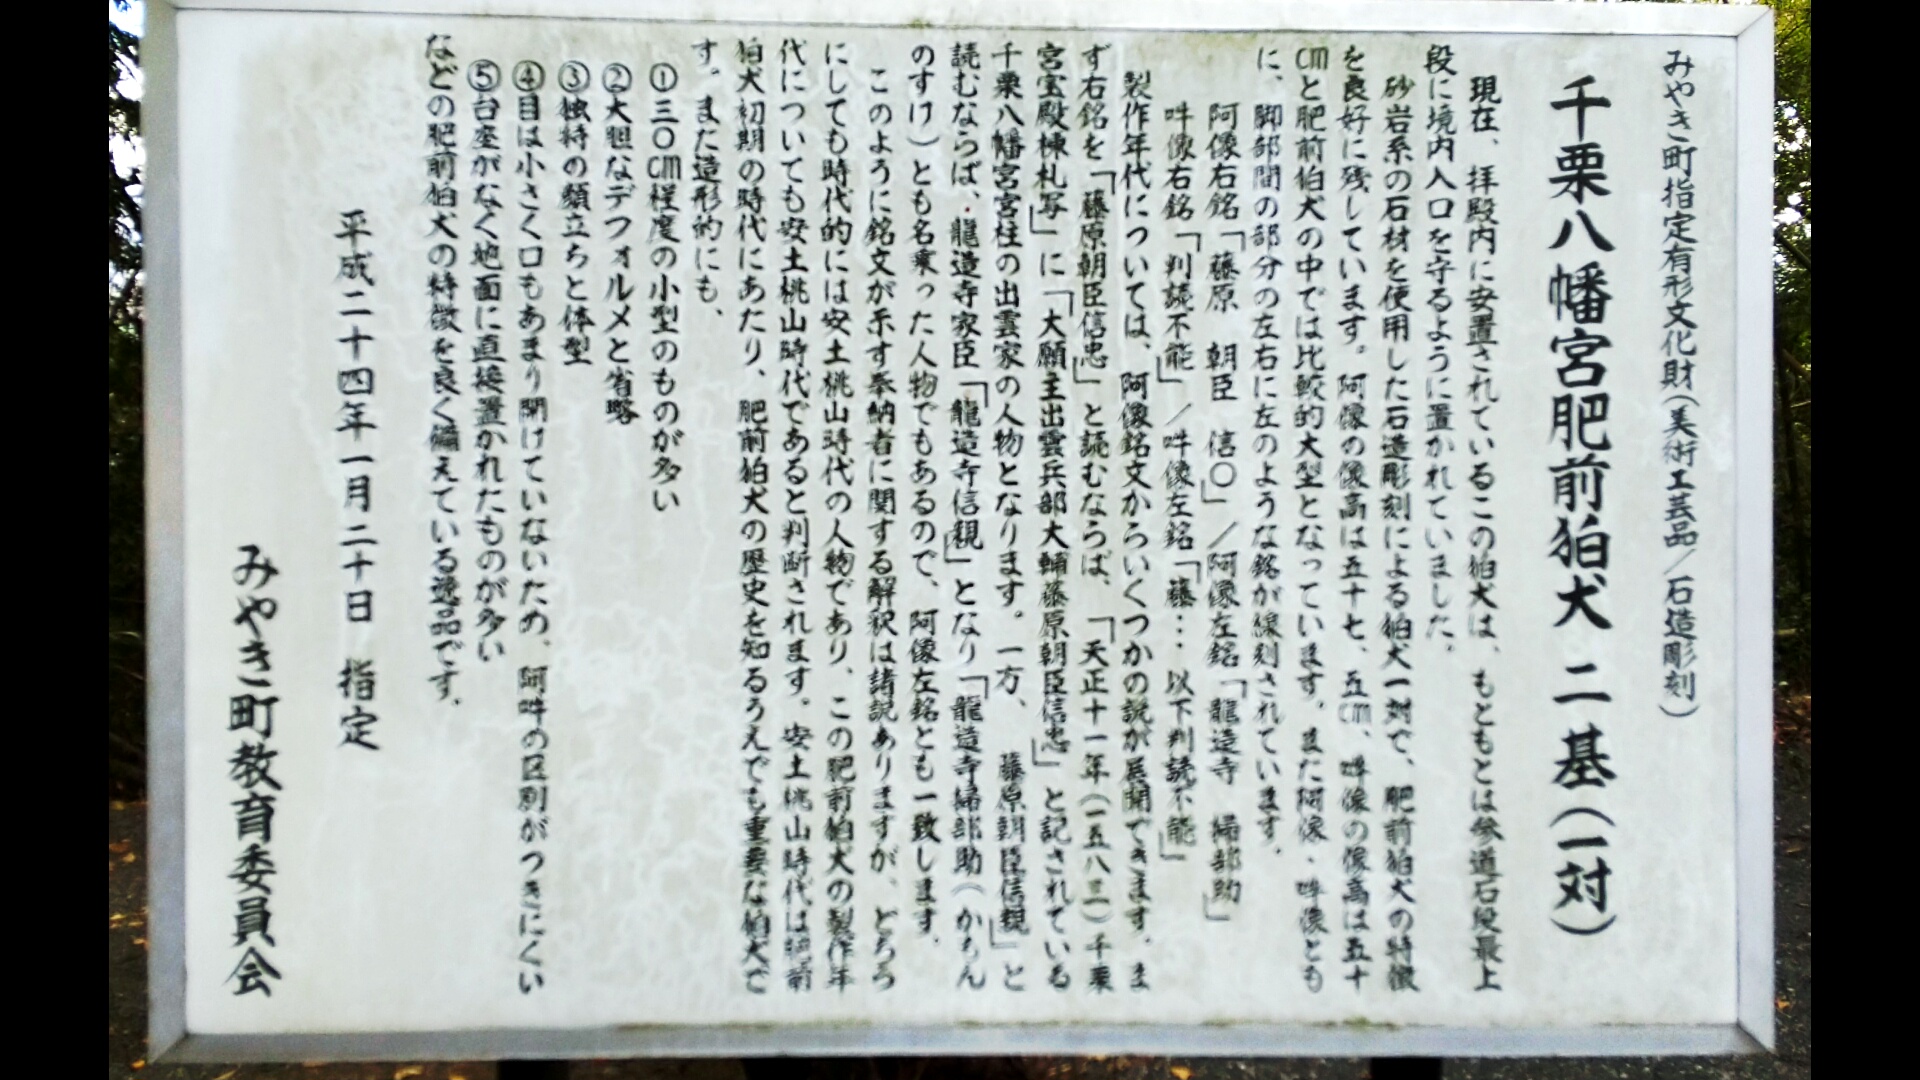 みやき町指定有形文化財(美術工芸品/石造彫刻)
千栗八幡宮肥前狛犬 二基(一対)
現在、拝殿内に安置されているこの狛犬は、もともとは参道石段最上
段に境内入口を守るように置かれていました。
砂岩系の石材を使用した石造彫刻による狛犬一対で、肥前狛犬の特徴
を良好に残しています。阿像の像高は五十七、五㎝、吽像の像高は五十
㎝と肥前狛犬の中では比較的大型となっています。また阿像・吽像とも
に、脚部間の部分の左右に左のような銘が線刻されています。
阿像右銘「藤原 朝臣 信○」/阿像左銘「龍造寺 掃部助」
吽像右銘「判読不能」/吽像左銘「藤…以下判読不能」
製作年代については、阿像銘文からいくつかの説が展開できます。ま
ず右銘を「藤原朝臣信忠」と読むならば、「天正十一年(一五八三)千栗
宮宝殿棟札写」に「大願主出雲兵部大輔藤原朝臣信忠」と記されている
千栗八幡宮宮柱の出雲家の人物となります。一方、「藤原朝臣信親」と
読むならば、龍造寺家臣「龍造寺信親」となり「龍造寺掃部助(かもん
のすけ)とも名乗った人物でもあるので、阿像左銘とも一致します。
このように銘文が示す奉納者に関する解釈は諸説ありますが、どちら
にしても時代的には安土桃山時代の人物であり、この肥前狛犬の製作年
代についても安土桃山時代であると判断されます。安土桃山時代は肥前
狛犬初期の時代にあたり、肥前狛犬の歴史を知るうえでも重要な狛犬で
す。また造形的にも、
①三〇㎝程度の小型のものが多い
②大胆なデフォルメと省略
③独特の顔立ちと体型
④目は小さく口もあまり開けていないため、阿吽の区別がつきにくい
⑤台座がなく地面に直接置かれたものが多い
などの肥前狛犬の特徴を良く備えている逸品です。
平成二十四年一月二十日 指定
みやき町教育委員会